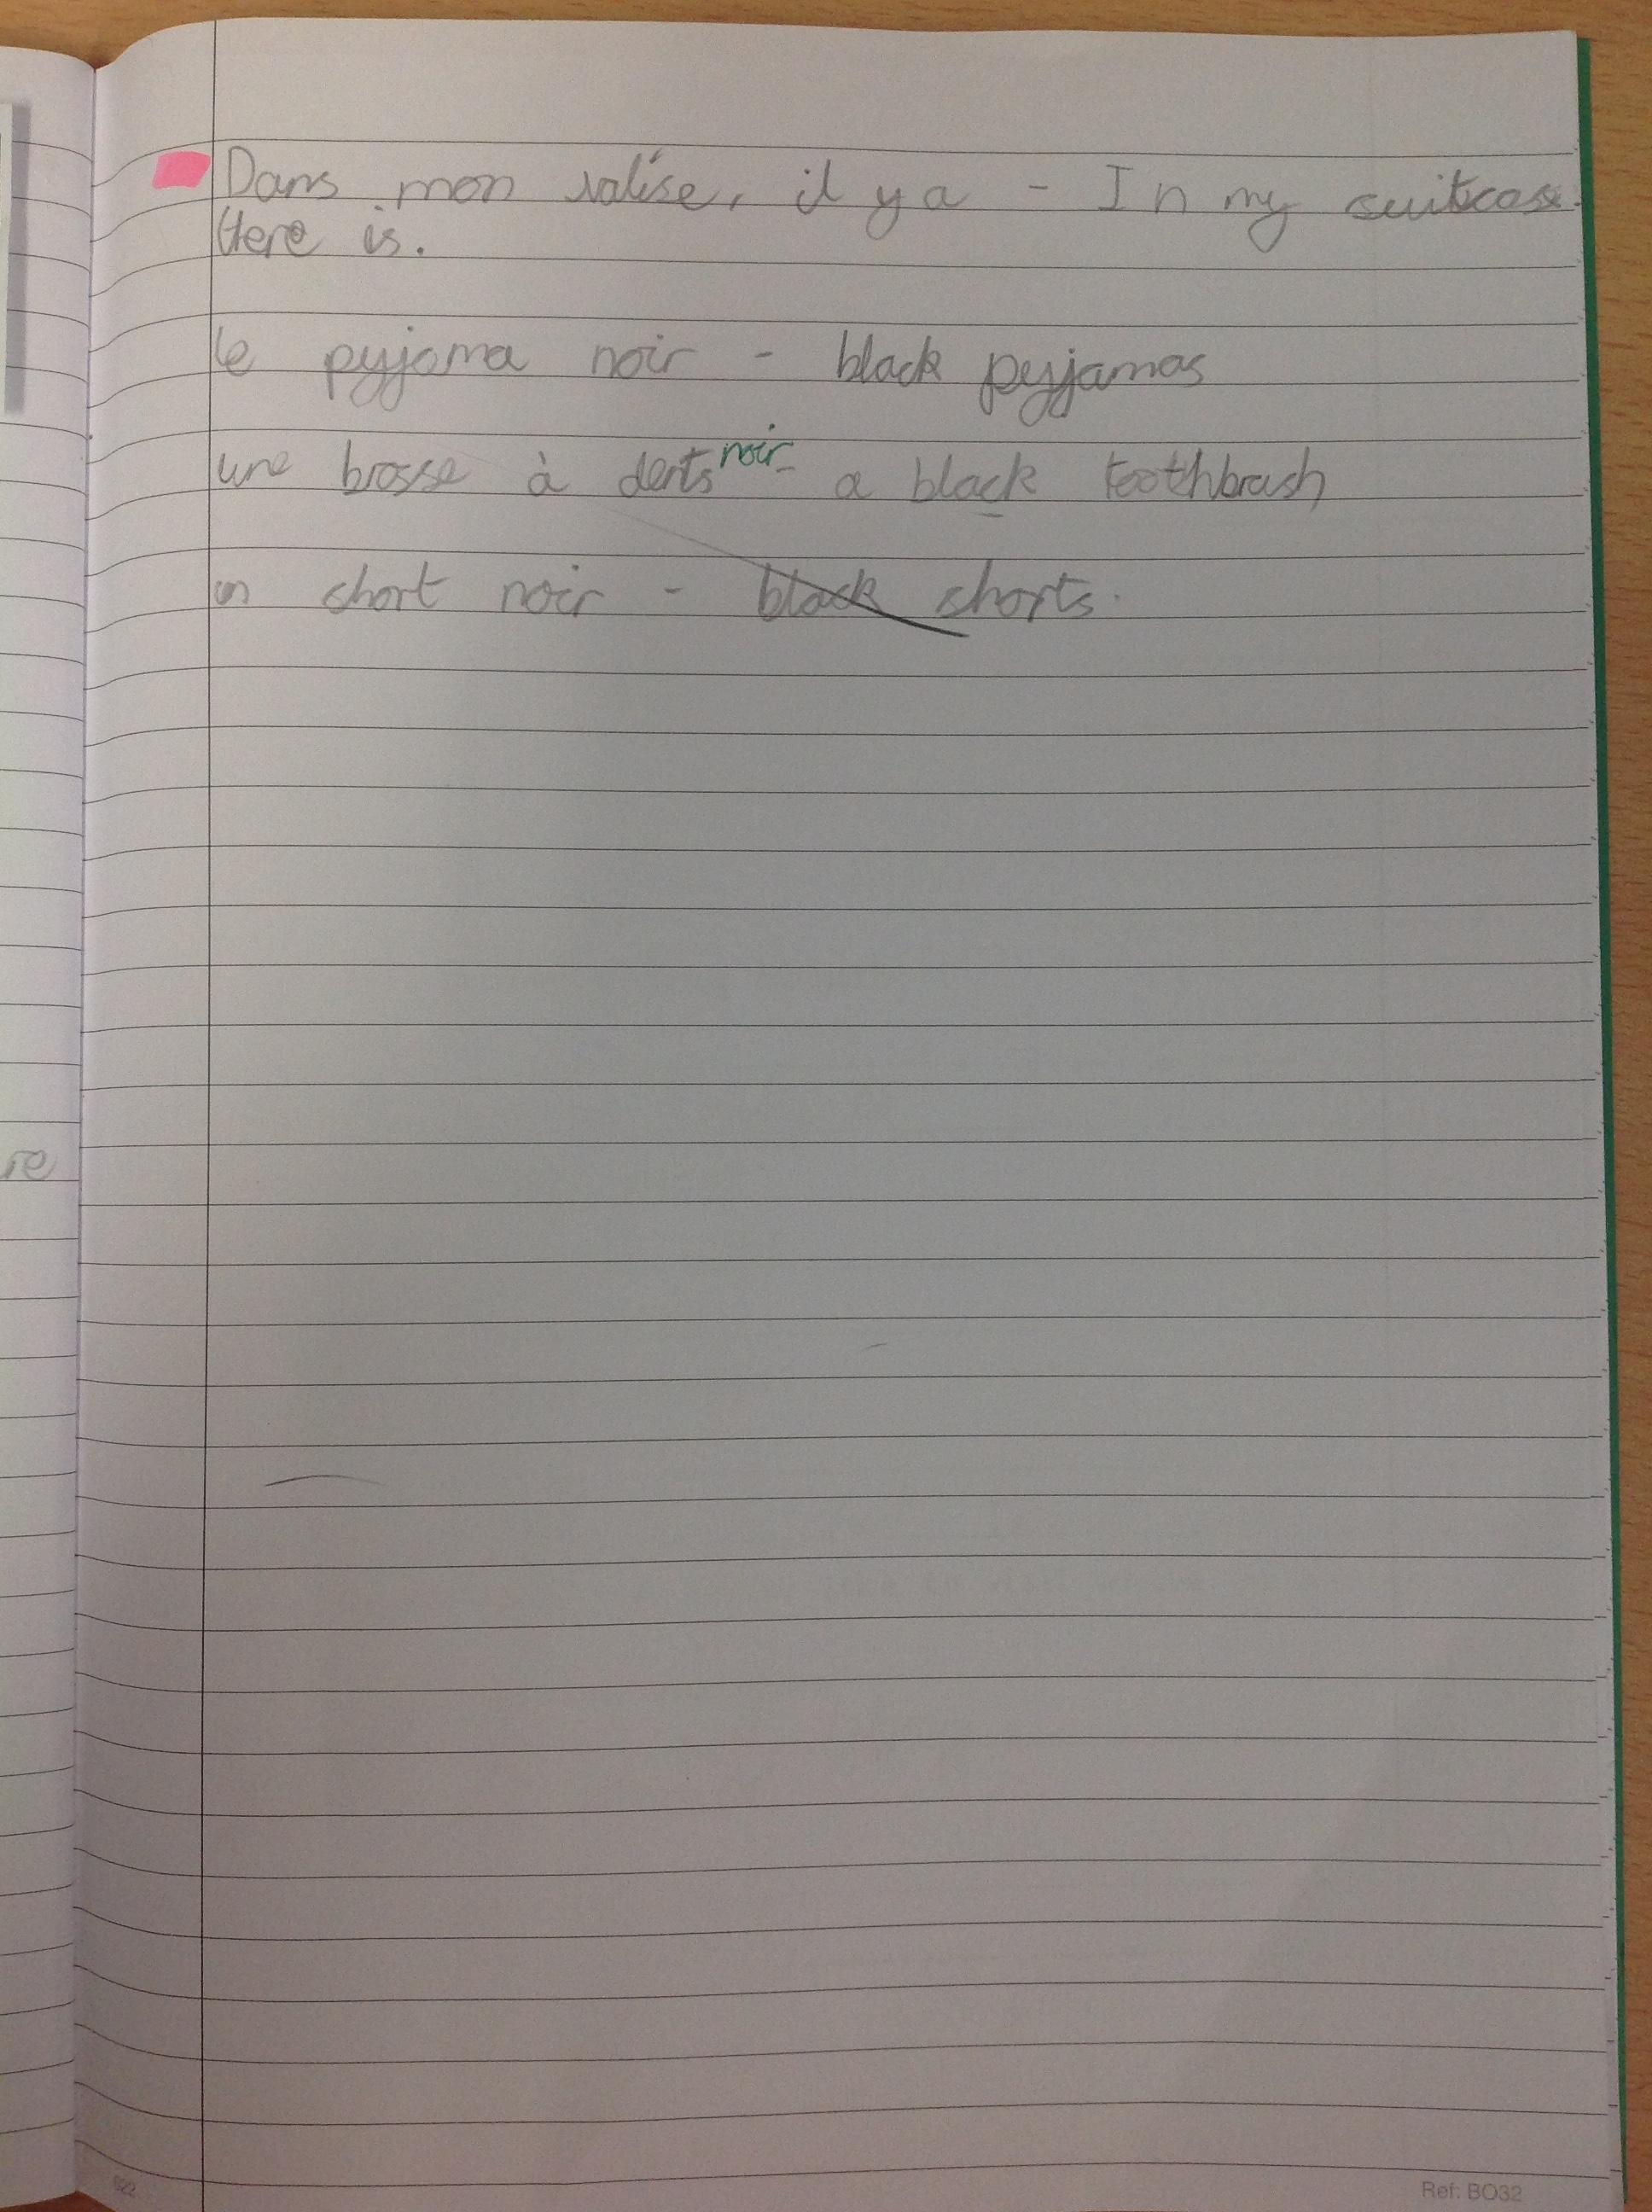 Dans mon valise, il y a - In my suitcase
there is.
le pyjama noir - black pyjamas
une brosse à dents noir - a black toothbrush
un short noir - black shorts.
re
622
Ref: BO32